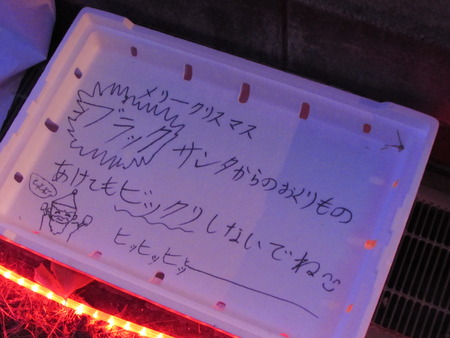 メリークリスマス
ブラックサンタからのおくりもの
あけてもビックリしないでね
ヒッヒッヒッ